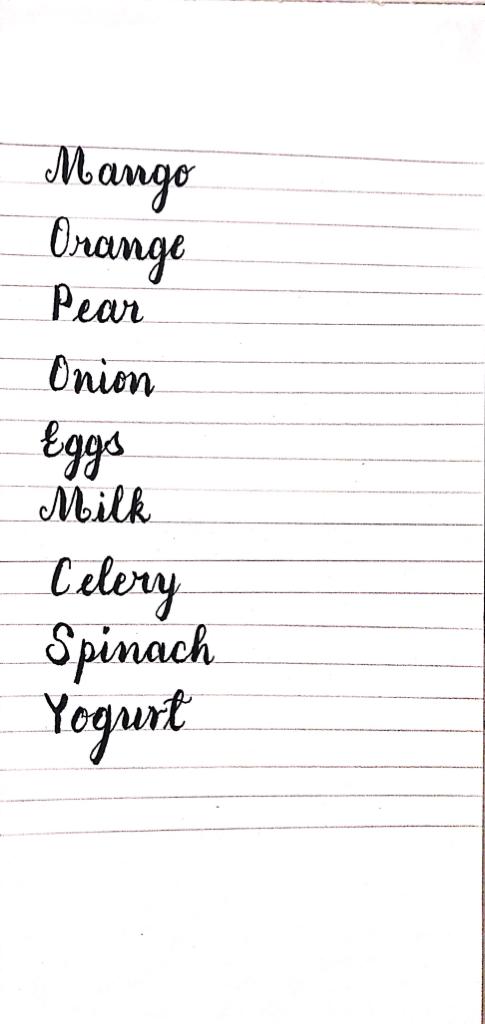 Mango
Orange
Pear
Onion
Eggs
Milk
Celery
Spinach
Yogurt